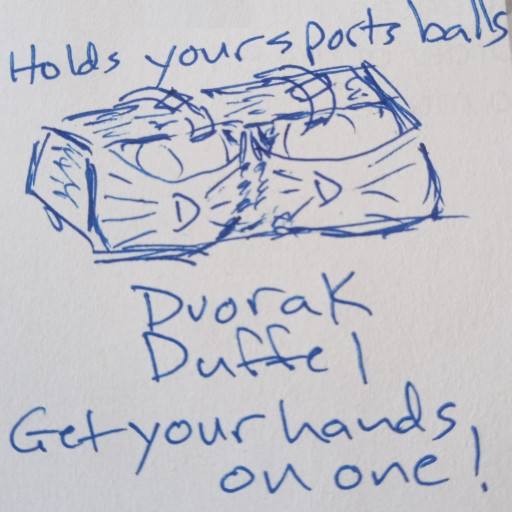 Holds your sports balls
D D
Dvorak
Duffel
Get your hands
on one!